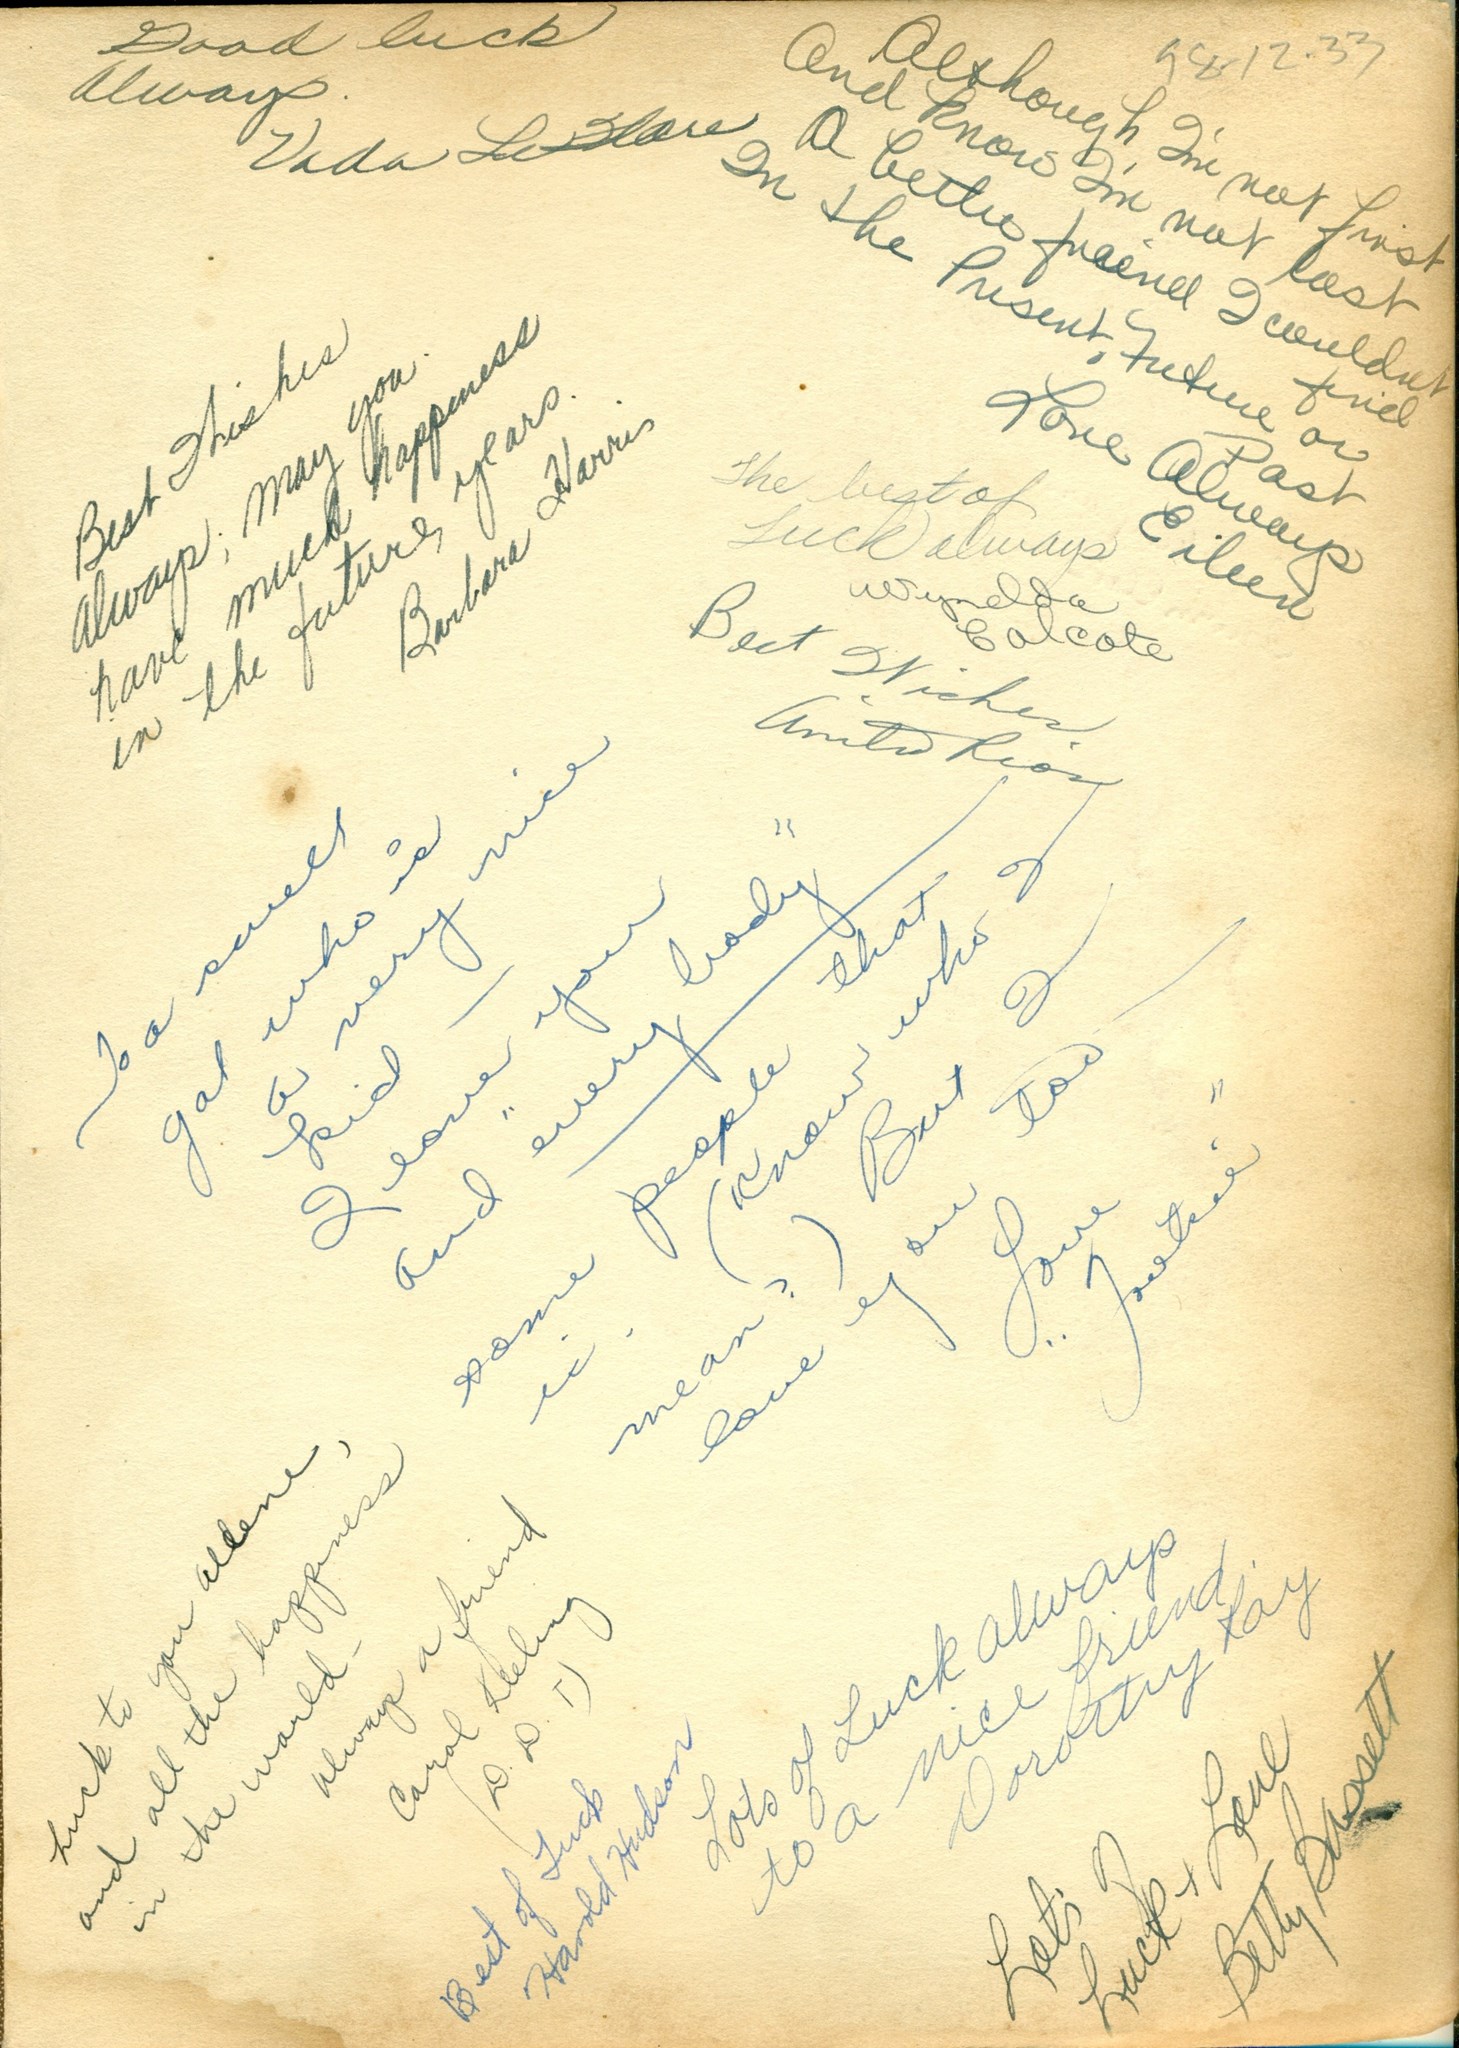 Good luck
Always.
Vada LeBlare
98.12.33
Although I'm not first
And know I'm not last
A better freind I couldn't find
In the Present, Future or Past
Love Always
Eileen
Best Wishes
Always; may you
have much happiness
in the future years.
Barbara Harris
The best of
Luck always
Wynelda
Calcote
Best Wishes.
Anita Rios
To a sweet
gal who is
a very nice
kid —
I love you
and "every body"
some people that
is. (know who I
mean?) But I
love you too —
Love
"Toetsie"
Luck to you Aldene,
and all the happiness
in the world –
Always a friend
Carol Keeling
(D. D. T)
Best of Luck
Harold Hudson
Lots of Luck always
to a nice friend.
Dorothy Kay
Lots of
Luck + Love
Betty Bassett